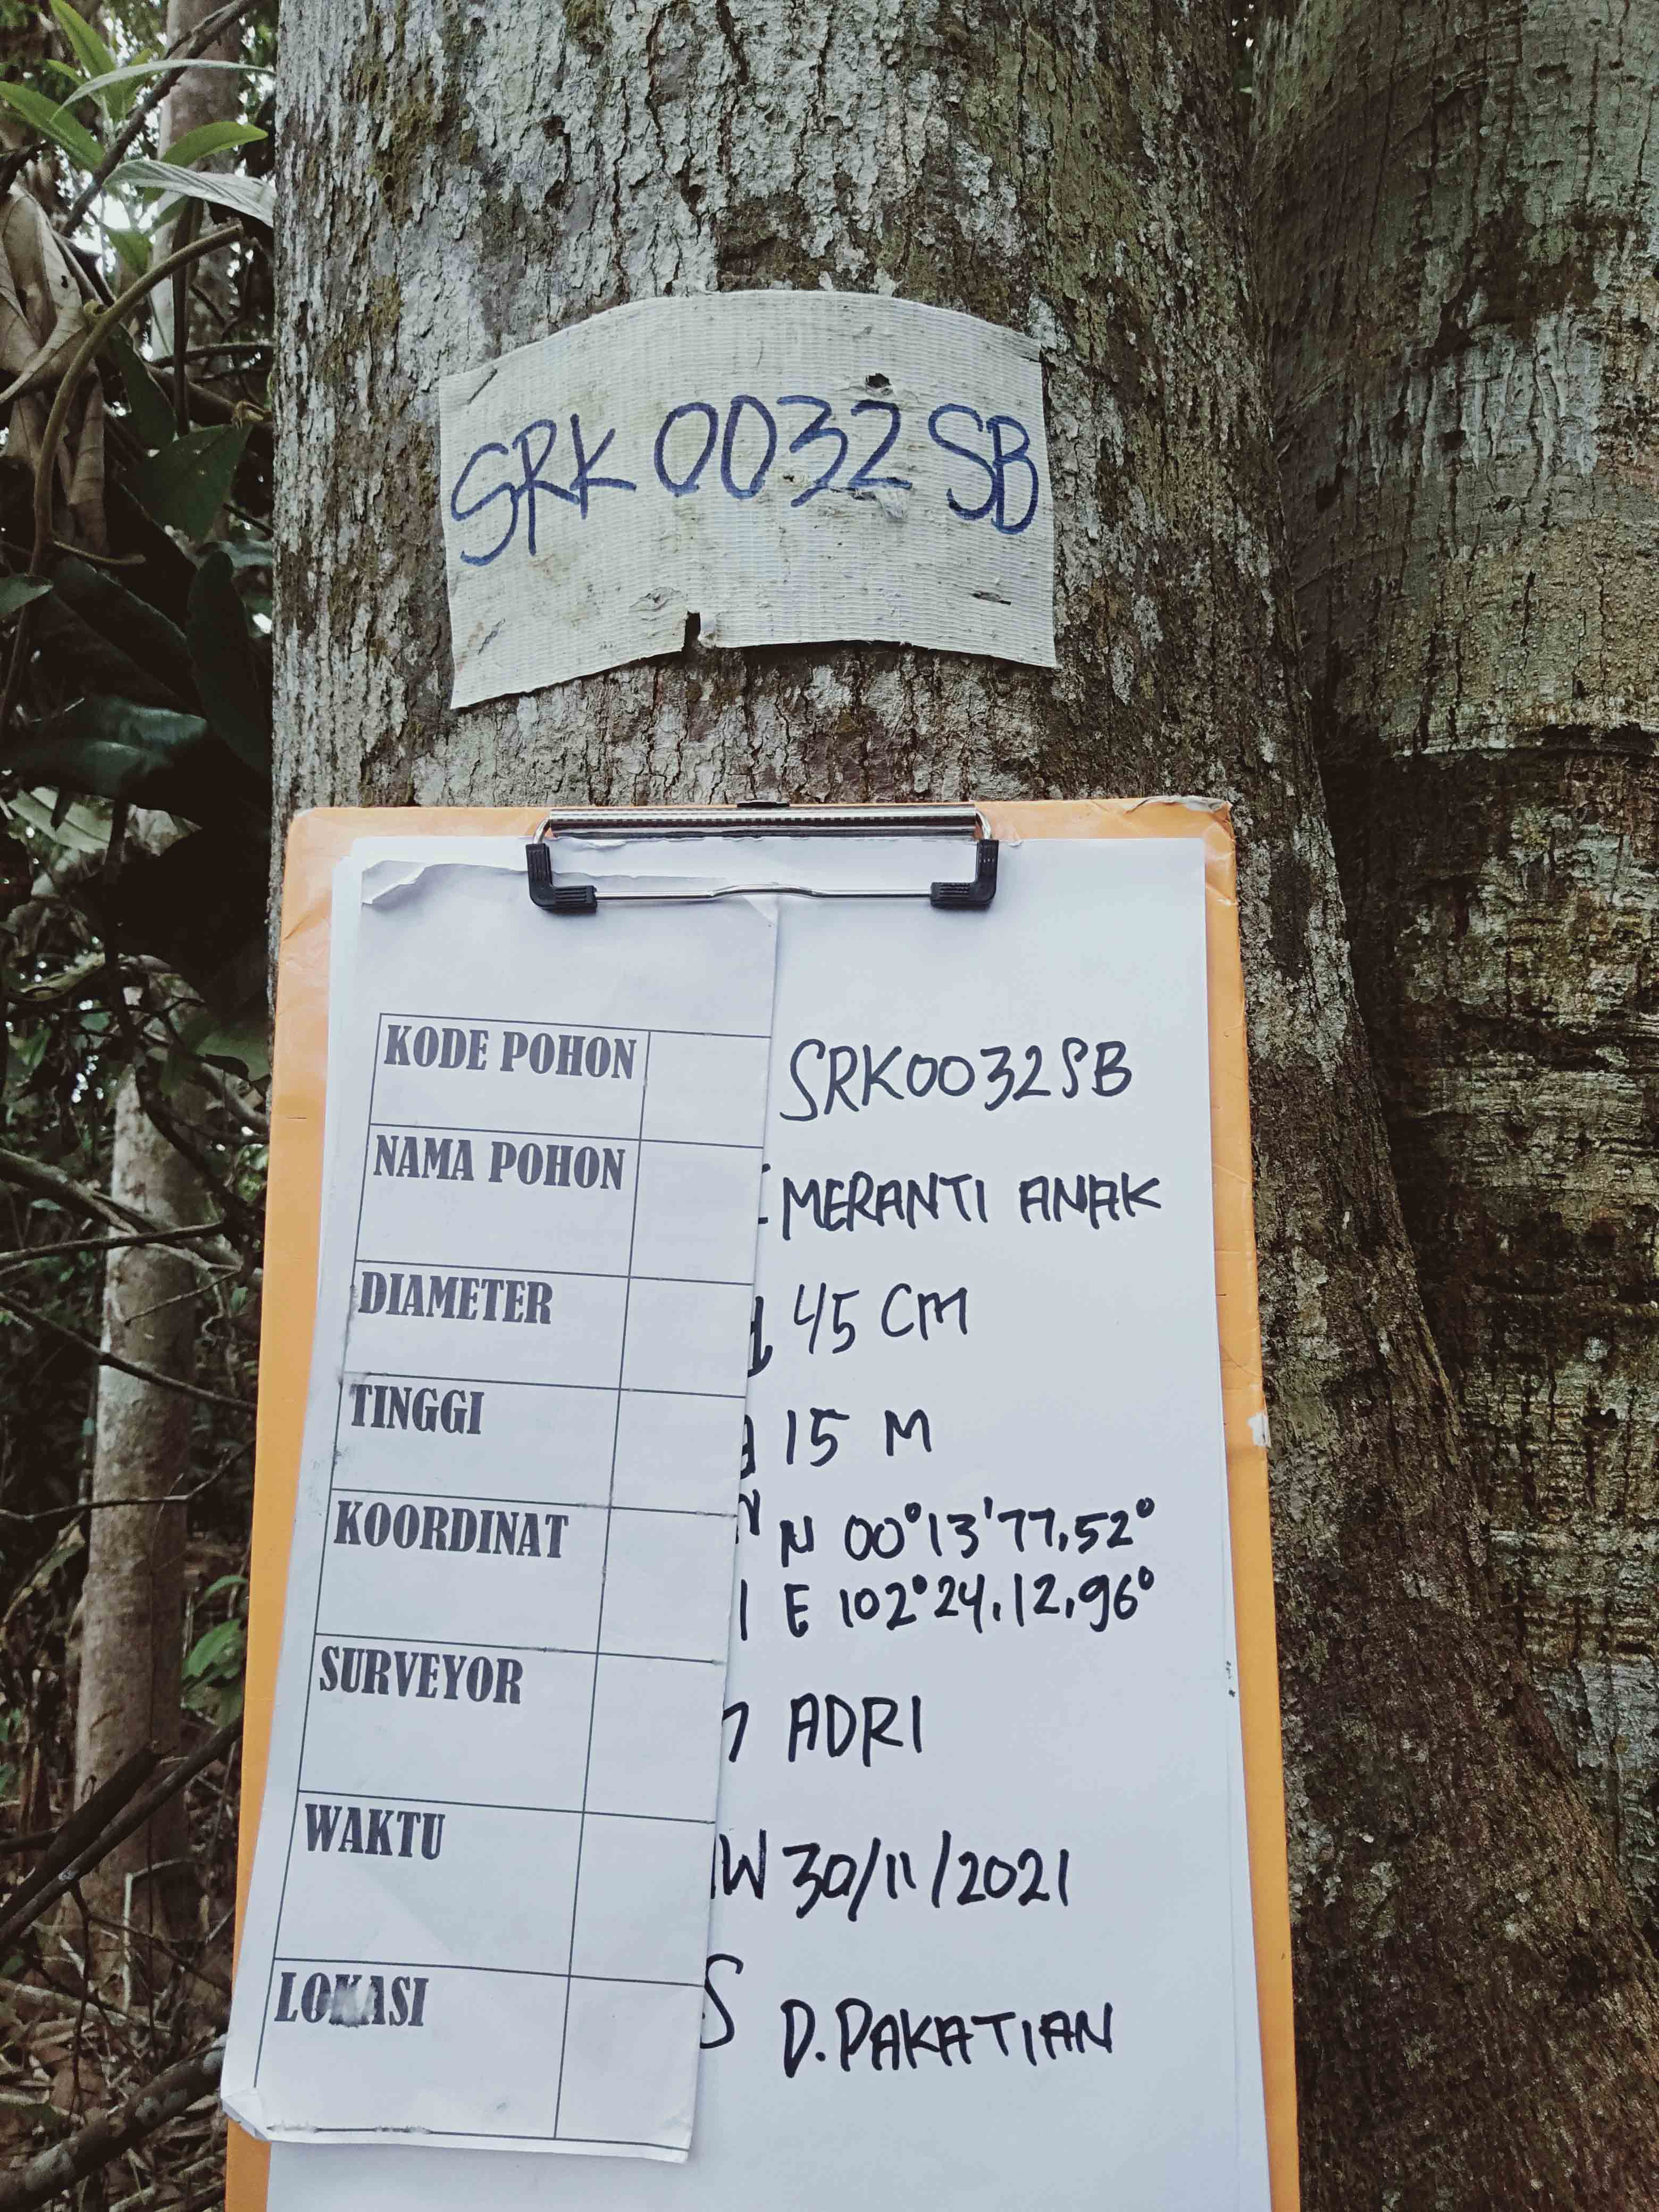 SRK 0032 SB
KODE POHON SRK0032SB
NAMA POHON MERANTI ANAK
DIAMETER 45 CM
TINGGI 15 M
KOORDINAT N 00°13'77,52°
E 102°24,12,96°
SURVEYOR ADRI
WAKTU 30/11/2021
LOKASI D.PAKATIAN